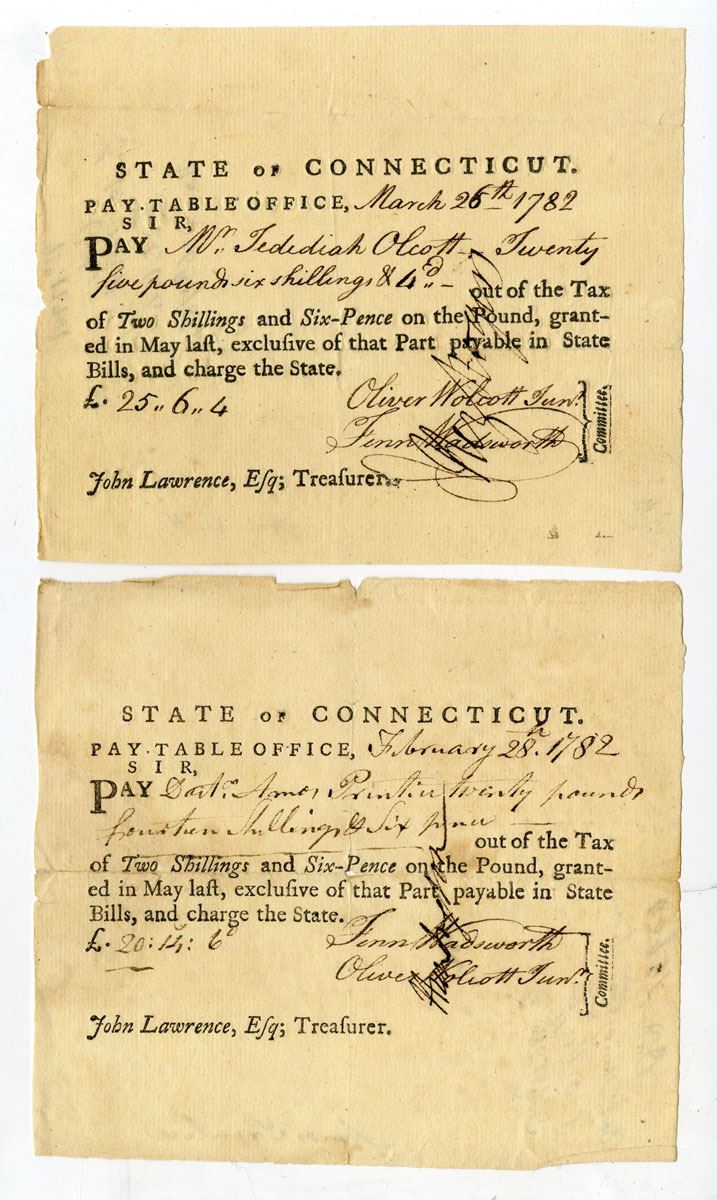 STATE OF CONNECTICUT.
PAY-TABLE OFFICE, March 26th 1782
SIR,
PAY Mr. Jedediah Olcott Twenty
five pounds six shillings & 4d. out of the Tax
of Two Shillings and Six-Pence on the Pound, grant-
ed in May laſt, excluſive of that Part payable in State
Bills, and charge the State.
£. 25,, 6,, 4 Oliver Wolcott Junr.
Fenn Wadsworth
Committee.
John Lawrence, Eſq; Treaſurer.
STATE OF CONNECTICUT.
PAY-TABLE OFFICE, February 28th. 1782
SIR,
PAY Doctr. Amos twenty pounds
fourteen Shillings & Six pence out of the Tax
of Two Shillings and Six-Pence on the Pound, grant-
ed in May laſt, excluſive of that Part payable in State
Bills, and charge the State.
£. 20: 14: 6d Fenn Wadsworth
Oliver Wolcott Junr.
Committee.
John Lawrence, Eſq; Treaſurer.